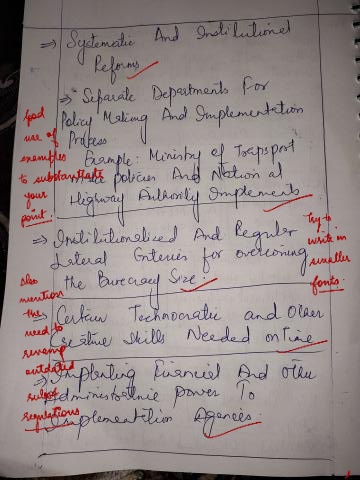 ⇒ Systematic And Institutional
Reforms
⇒ Separate Departments For
Policy Making And Implementation
Profess
Example: Ministry of Trapsport
policies And Nation al
Highway Authority Implements
good
use of
examples
to substantiate
your
point.
⇒ Institutionalised And Regular
Lateral Enteries for overcoming
the Burecracy Size
Try to
write in
smaller
fonts.
Certain Technocratic and Other
Creative Skills Needed on Time
also
mention
the
need to
revamp
outdated
rules
regulations
⇒ Implanting Financial And Other
Administrative power To
Implementation Agencies.